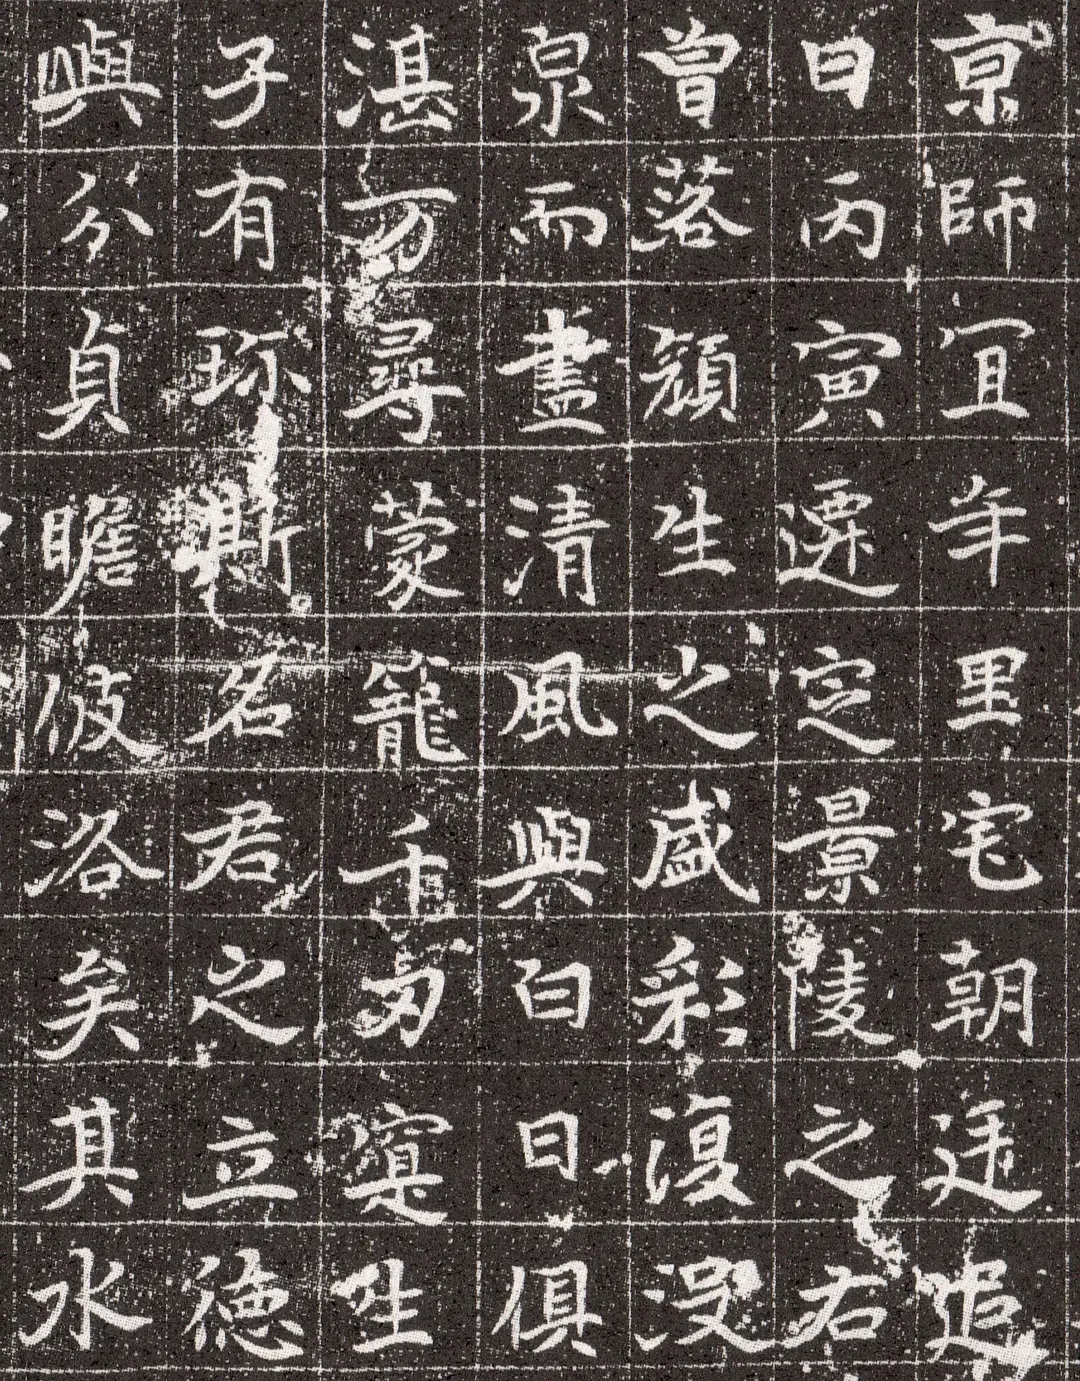 京師冝年里宅朝廷追
日丙寅遷窆景陵之右
曾落頴生之盛彩復没
泉而盡清風與白日俱
湛万尋蒙籠千刃寔生
子有珎斯名君之立德
與分貞瞻彼洛矣其水